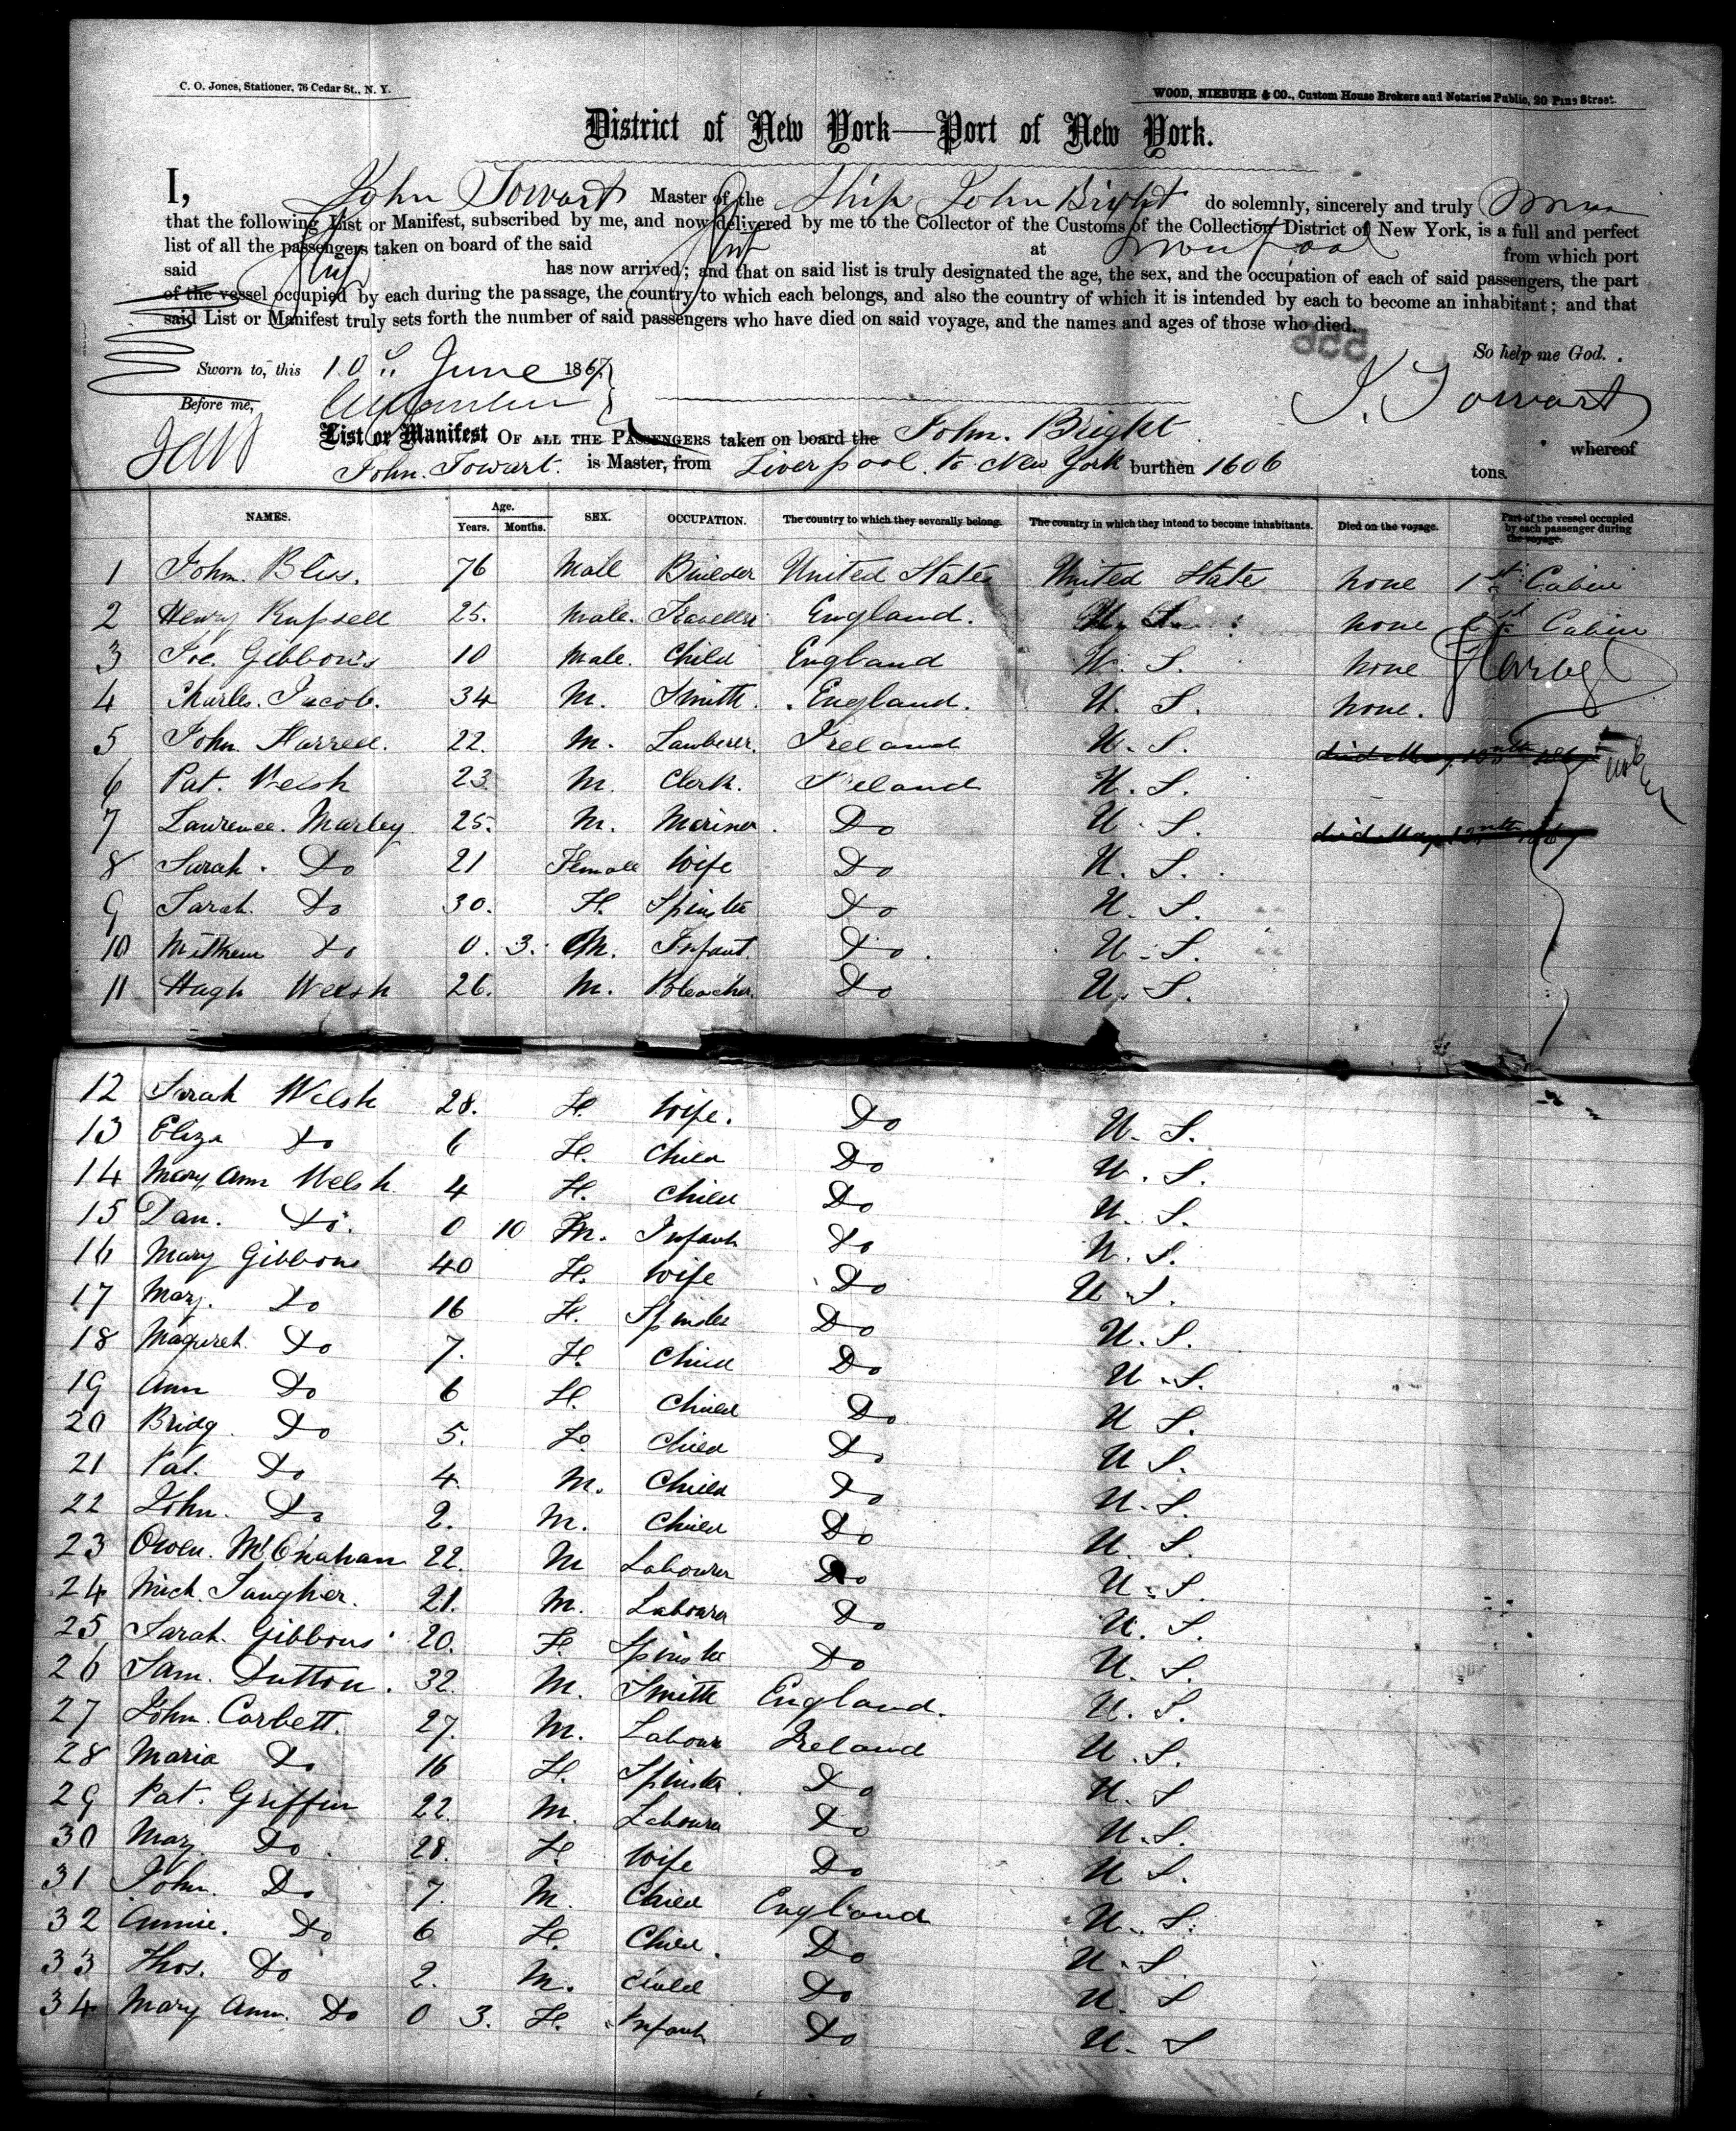 C. O. Jones, Stationer, 76 Cedar St., N. Y.
WOOD, NIEBUHR & CO., Custom House Brokers and Notaries Public, 20 Pine Street.
District of New York—Port of New York.
I, John Towart Master of the Ship John Bright do solemnly, sincerely and truly
that the following List or Manifest, subscribed by me, and now delivered by me to the Collector of the Customs of the Collection District of New York, is a full and perfect
list of all the passengers taken on board of the said Ship at Liverpool from which port
said Ship has now arrived; and that on said list is truly designated the age, the sex, and the occupation of each of said passengers, the part
of the vessel occupied by each during the passage, the country to which each belongs, and also the country of which it is intended by each to become an inhabitant; and that
said List or Manifest truly sets forth the number of said passengers who have died on said voyage, and the names and ages of those who died.
So help me God.
Sworn to, this 10th June 1867
J. Towart
Before me,
List or Manifest OF ALL THE PASSENGERS taken on board the John. Bright whereof
John. Towart. is Master, from Liverpool. to New York burthen 1606 tons.
NAMES. Age. Years. Months. SEX. OCCUPATION. The country to which they severally belong. The country in which they intend to become inhabitants. Died on the voyage. Part of the vessel occupied by each passenger during the voyage.
1 John. Bliss. 76 Male Builder United States United States none 1st Cabin
2 Henry Russell 25. Male. Traveller England. U. S. none Cabin
3 Joe. Gibbons 10 Male. Child England U. S. none
4 Charles. Jacob. 34 M. Smith. England. U. S. none.
5 John. Farrell. 22. M. Ireland U. S. died May
6 Pat. Welsh 23 M. Clerk. Ireland U. S.
7 Lawrence. Marley. 25. M. Mariner. Do U. S. died May 1867
8 Sarah. Do 21 Female Wife Do U. S.
9 Sarah. Do 30. F. Spinster Do U. S.
10 Do 0. 3. M. Infant. Do. U. S.
11 Hugh Welsh 26. M. Bleacher. Do U. S.
12 Sarah Welsh 28. F. Wife. Do U. S.
13 Eliza Do 6 F. Child Do U. S.
14 Mary Ann Welsh 4 F. Child Do U. S.
15 Dan. Do. 0 10 M. Infant Do U. S.
16 Mary Gibbons 40 F. Wife Do U. S.
17 Mary. Do 16 F. Spinster Do U. S.
18 Magureh. Do 7. F. Child Do U. S.
19 Ann Do 6 F. Child Do U S.
20 Bridg. Do 5. F. Child Do U S.
21 Pat. Do 4. M. Child Do U. S.
22 John. Do 2. M. Child Do U. S.
23 Owen. 22. M Labourer Do U. S.
24 Mich. Saugher. 21. M. Labourer Do U. S.
25 Sarah. Gibbons 20. F. Spinster Do U. S.
26 Sam. Dutton. 32. M. Smith England. U. S.
27 John. Corbett. 27. M. Labour Ireland U. S.
28 Maria Do 16 F. Spinster. Do U. S
29 Pat. Griffin 22. M. Labourer Do U. S.
30 Mary Do. 28. F. Wife Do U S.
31 John. Do 7. M. Child England U. S.
32 Annie. Do 6 F. Child. Do U. S.
33 Thos. Do 2. M. Child Do U. S
34 Mary Ann. Do 0 3. F. Infant Do U. S